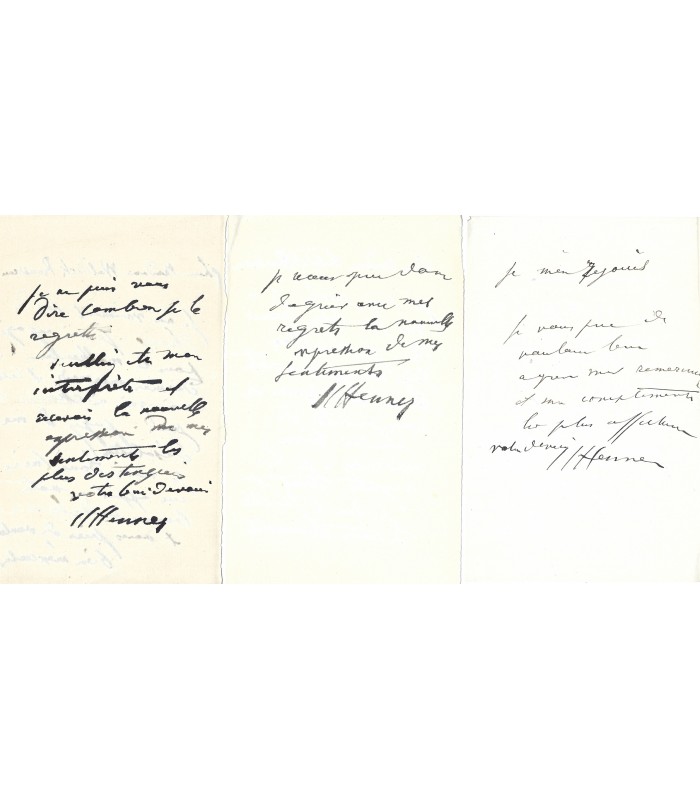 je ne puis vous
dire combien je le
regrette
veuillez être mon
interprète et
recevoir la nouvelle
expression de mes
sentiments les
plus distingués
votre bien dévoué
JJHenner
je vous prie donc
d'agréer avec mes
regrets la nouvelle
expression de mes
sentiments
JJHenner
je m'en réjouis
je vous prie de
vouloir bien
agréer mes remerciements
et mes compliments
les plus affectueux
votre dévoué JJHenner